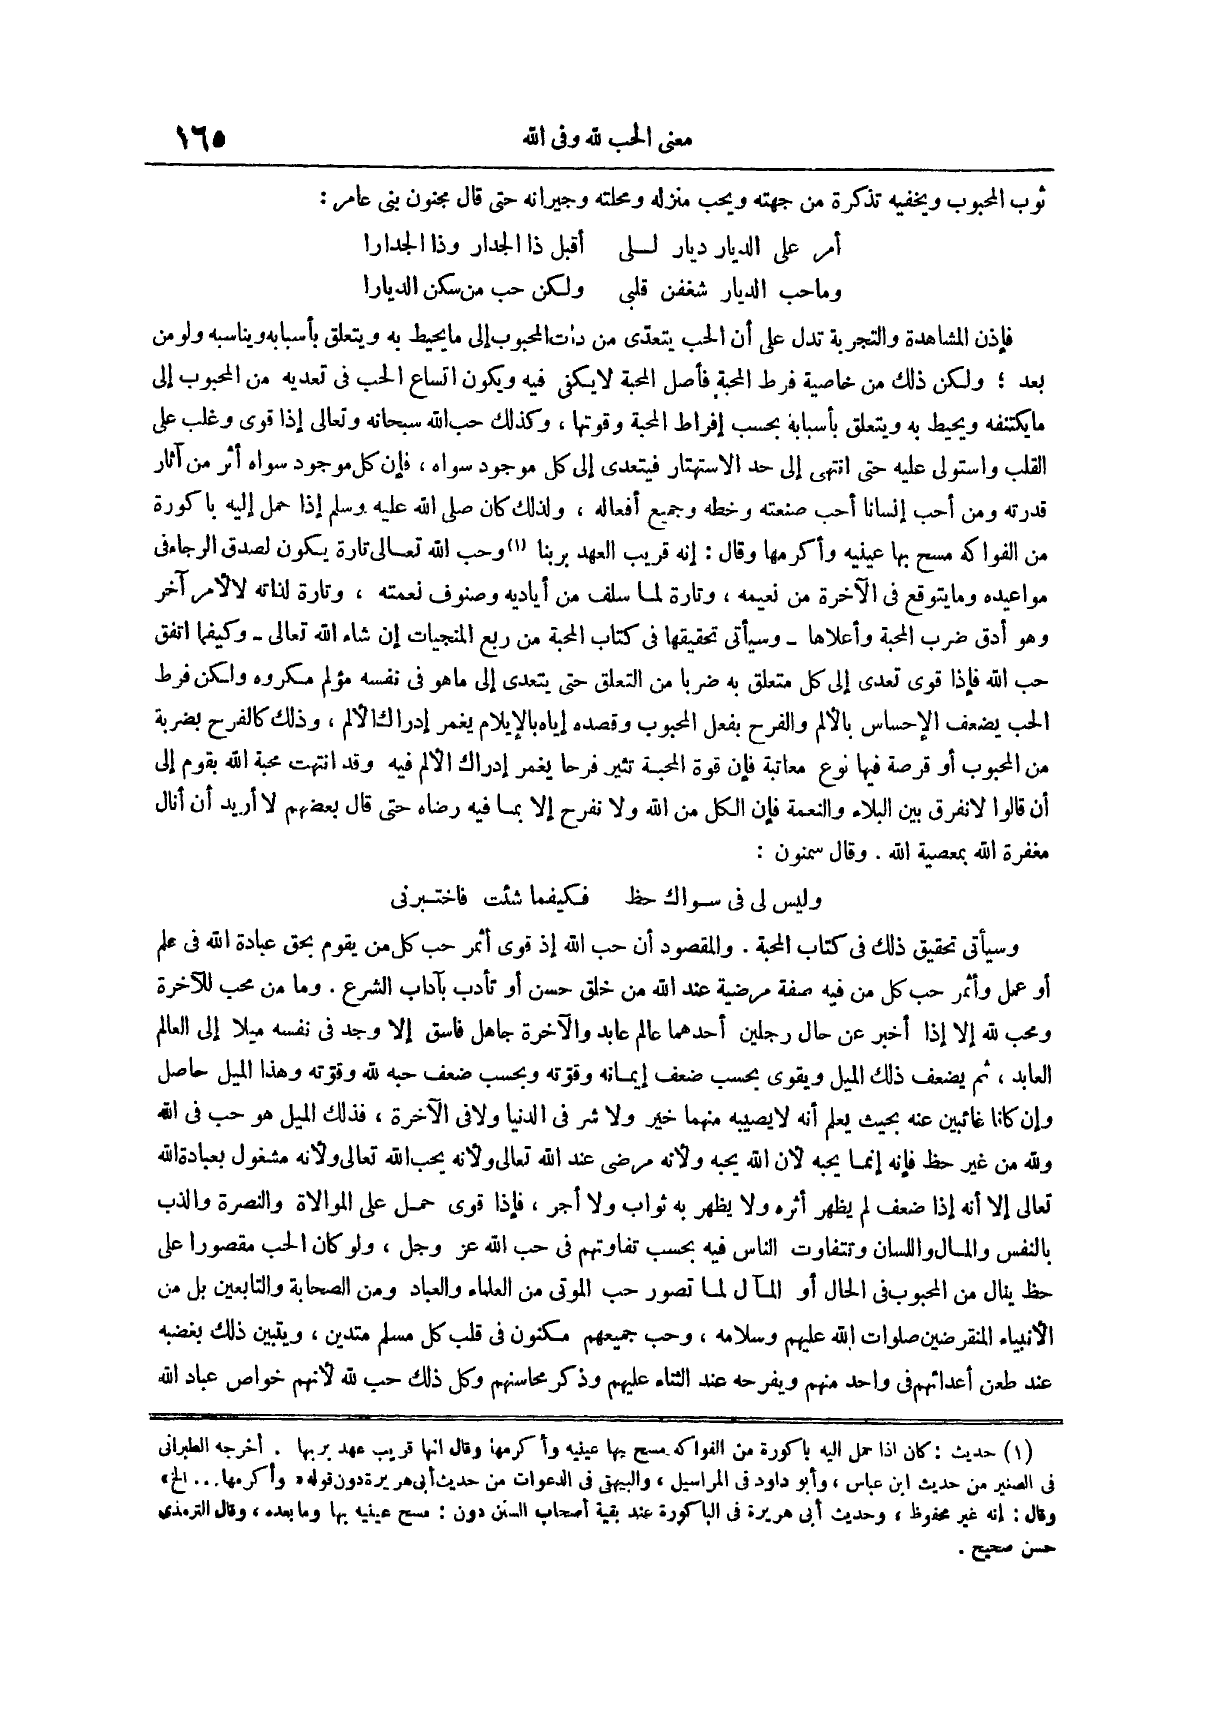 معنى الحب لله وفى الله ١٦٥
ثوب المحبوب ويخفيه تذكرة من جهته ويحب منزله ومحلته وجيرانه حتى قال مجنون بنى عامر :
أمر على الديار ديار لـلى أقبل ذا الجدار وذا الجدارا
وماحب الديار شغفن قلبى ولكن حب من سكن الديارا
فإذن المشاهدة والتجربة تدل على أن الحب يتعدّى من ذات المحبوب إلى مايحيط به ويتعلق بأسبابه ويناسبه ولو من
بعد ؛ ولكن ذلك من خاصية فرط المحبة فأصل المحبة لايكفى فيه ويكون اتساع الحب فى تعديه من المحبوب إلى
مايكتنفه ويحيط به ويتعلق بأسبابة بحسب إفراط المحبة وقوتها ، وكذلك حب الله سبحانه وتعالى إذا قوى وغلب على
القلب واستولى عليه حتى انتهى إلى حد الاستهتار فيتعدى إلى كل موجود سواه ، فإن كل موجود سواه أثر من آثار
قدرته ومن أحب إنسانا أحب صنعته وخطه وجميع أفعاله ، ولذلك كان صلى الله عليه وسلم إذا حمل إليه باكورة
من الفواكه مسح بها عينيه وأكرمها وقال : إنه قريب العهد بربنا (١) وحب الله تعالى تارة يكون لصدق الرجاء فى
مواعيده ومايتوقع فى الآخرة من نعيمه ، وتارة لما سلف من أياديه وصنوف نعمته ، وتارة لذاته لالأمر آخر
وهو أدق ضرب المحبة وأعلاها ـ وسيأتى تحقيقها فى كتاب المحبة من ربع المنجيات إن شاء الله تعالى ـ وكيفما اتفق
حب الله فإذا قوى تعدى إلى كل متعلق به ضربا من التعلق حتى يتعدى إلى ماهو فى نفسه مؤلم مكروه ولكن فرط
الحب يضعف الإحساس بالألم والفرح بفعل المحبوب وقصده إياه بالإيلام يغمر إدراك الألم ، وذلك كالفرح بضربة
من المحبوب أو قرصة فيها نوع معاتبة فإن قوة المحبة تثير فرحا يغمر إدراك الألم فيه وقد انتهت محبة الله بقوم إلى
أن قالوا لانفرق بين البلاء والنعمة فإن الكل من الله ولا نفرح إلا بما فيه رضاه حتى قال بعضهم لا أريد أن أنال
مغفرة الله بمعصية الله . وقال سمنون :
وليس لى فى سواك حظ فكيفما شئت فاختبرنى
وسيأتى تحقيق ذلك فى كتاب المحبة . والمقصود أن حب الله إذ قوى أثمر حب كل من يقوم بحق عبادة الله فى علم
أو عمل وأثمر حب كل من فيه صفة مرضية عند الله من خلق حسن أو تأدب بآداب الشرع . وما من محب للآخرة
ومحب لله إلا إذا أخبر عن حال رجلين أحدهما عالم عابد والآخرة جاهل فاسق إلا وجد فى نفسه ميلا إلى العالم
العابد ، ثم يضعف ذلك الميل ويقوى بحسب ضعف إيمانه وقوّته وبحسب ضعف حبه لله وقوّته وهذا الميل حاصل
وإن كانا غائبين عنه بحيث يعلم أنه لايصيبه منهما خير ولا شر فى الدنيا ولافى الآخرة ، فذلك الميل هو حب فى الله
ولله من غير حظ فإنه إنما يحبه لأن الله يحبه ولأنه مرضى عند الله تعالى ولأنه يحب الله تعالى ولأنه مشغول بعبادة الله
تعالى إلا أنه إذا ضعف لم يظهر أثره ولا يظهر به ثواب ولا أجر ، فإذا قوى حمل على الموالاة والنصرة والذب
بالنفس والمال واللسان وتتفاوت الناس فيه بحسب تفاوتهم فى حب الله عز وجل ، ولو كان الحب مقصورا على
حظ ينال من المحبوب فى الحال أو المآل لما تصور حب الموتى من العلماء والعباد ومن الصحابة والتابعين بل من
الأنبياء المنقرضين صلوات الله عليهم وسلامه ، وحب جميعهم مكنون فى قلب كل مسلم متدين ، ويتبين ذلك بغضبه
عند طعن أعدائهم فى واحد منهم ويفرحه عند الثناء عليهم وذكر محاسنهم وكل ذلك حب لله لأنهم خواص عباد الله
(١) حديث : كان اذا حمل اليه باكورة من الفواكه مسح بها عينيه وأكرمها وقال انها قريب عهد بربها . أخرجه الطبرانى
فى الصغير من حديث ابن عباس ، وأبو داود فى المراسيل ، والبيهقى فى الدعوات من حديث أبى هريرة دون قوله « وأكرمها... الخ»
وقال : إنه غير محفوظ ، وحديث أبى هريرة فى الباكورة عند بقية أصحاب السنن دون : مسح عينيه بها ومابعده ، وقال الترمذى
حسن صحيح .